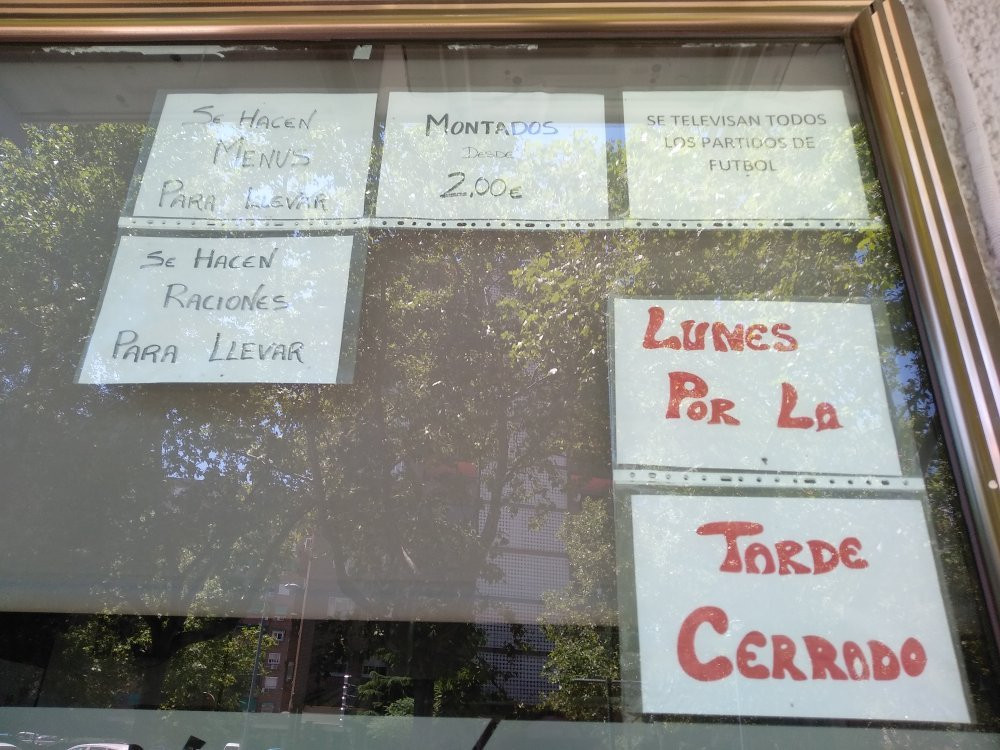 SE HACEN
MENUS
PARA LLEVAR
MONTADOS
DESDE
2,00€
SE TELEVISAN TODOS
LOS PARTIDOS DE
FUTBOL
SE HACEN
RACIONES
PARA LLEVAR
LUNES
POR LA
TARDE
CERRADO